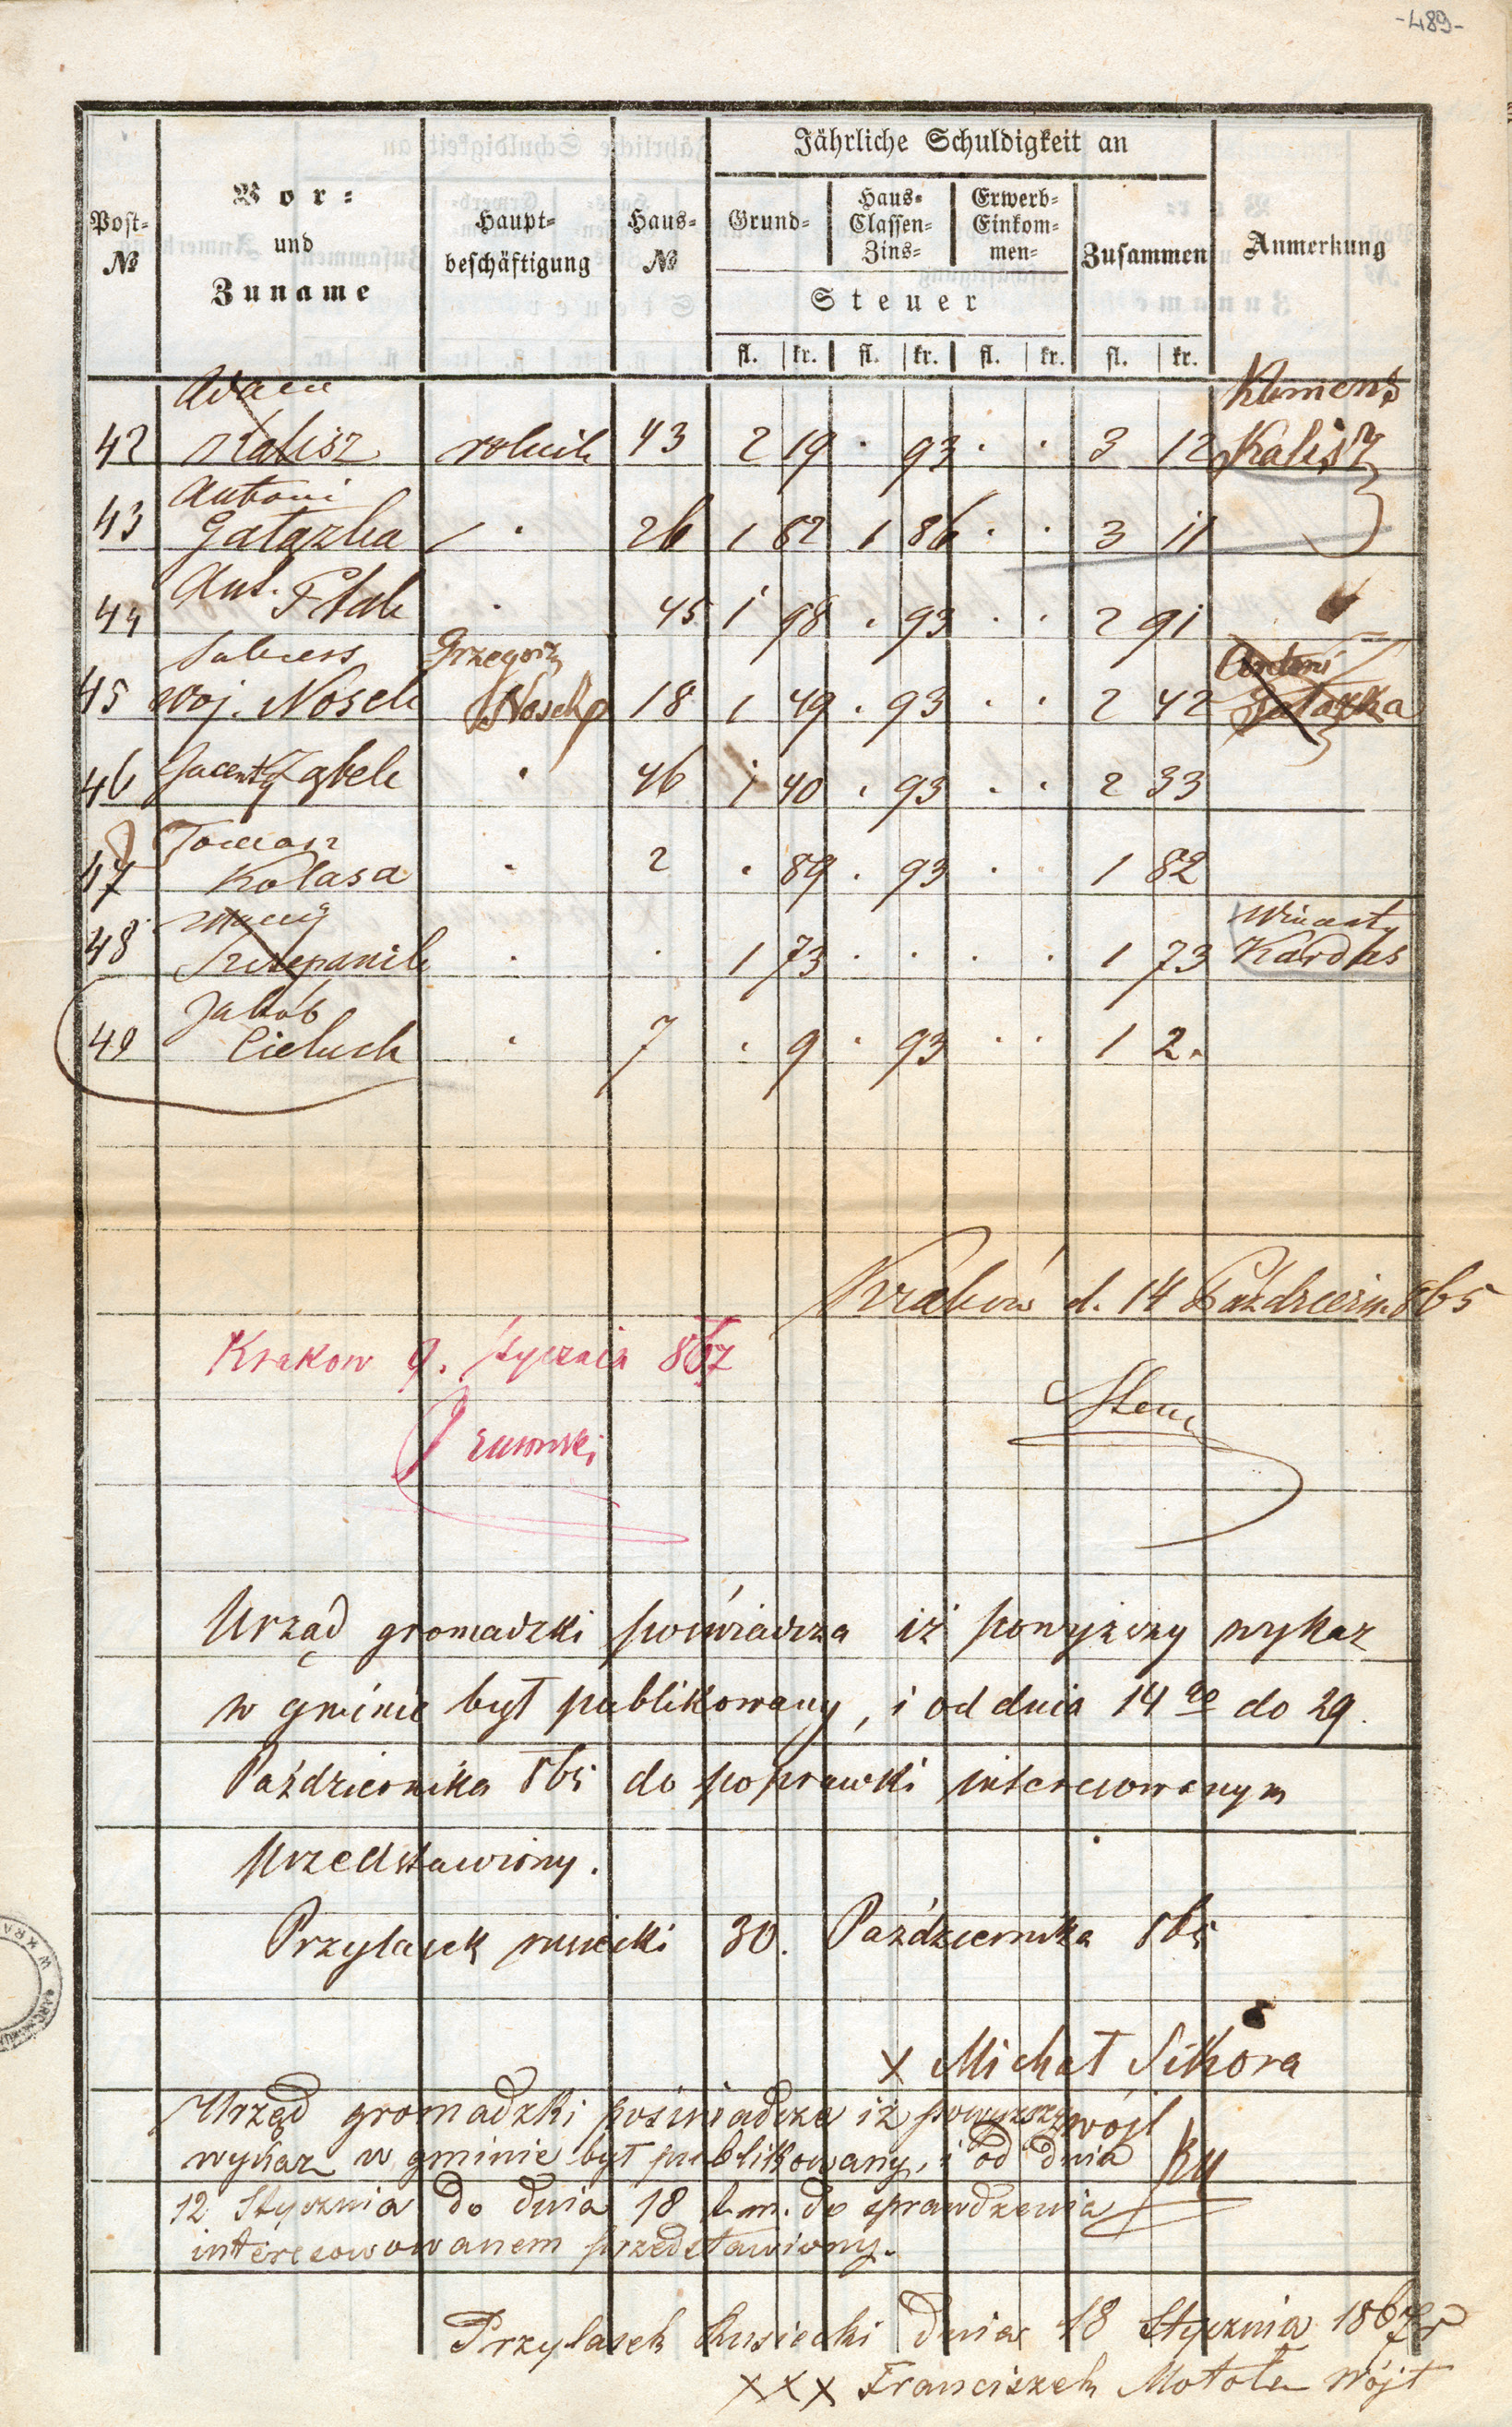 -489-
Jährliche Schuldigkeit an
Post-
№
Vor-
und
Zuname
Haupt-
beschäftigung
Haus-
№
Grund-
Haus-
Classen-
Zins-
Erwerb-
Einkom-
men-
Steuer
Zusammen
Anmerkung
fl. kr. fl. kr. fl. kr. fl. kr.
Adam Klemens
42 Kalisz rolnik 43 2 19 . 93 . . 3 12 Kalisz
Antoni
43 Gałązka 26 1 82 1 86 . . 3 11
44 Ant. Ptak . 45 1 98 . 93 . . 2 91
Sukcess Grzegorz Antoni
45 Woj. Nosek Nosek 18 1 49 . 93 . . 2 42 Gałązka
46 Jacenty Ząbek . 46 1 40 . 93 . . 2 33
Tomasz
47 Kolasa . 2 . 89 . 93 . . 1 82
Maciej Wincenty
48 Szczepanik . . 1 73 . . . . 1 73 Kardas
Jakób
49 Cieluch . 7 . 9 . 93 . . 1 2.
Kraków d. 14 Październ. 865
Krakow 9. stycznia 867
Urząd gromadzki poświadcza iż powyższy wykaz
w gminie był publikowany, i od dnia 14 go do 29.
Października 865 do poprawki interesowanym
przedstawiony.
Przylasek rusiecki 30. Października 865
x Michał Sikora
wójt
Urzęd gromadzki poświadcza iż powyższy
wykaz w gminie był publikowany, i od dnia
12 Stycznia do dnia 18 t. m. do sprawdzenia
interesowowanem przedstawiony.
Przylasek Rusiecki dnia 18 Stycznia 1867 r
xxx Franciszek Motoła wójt